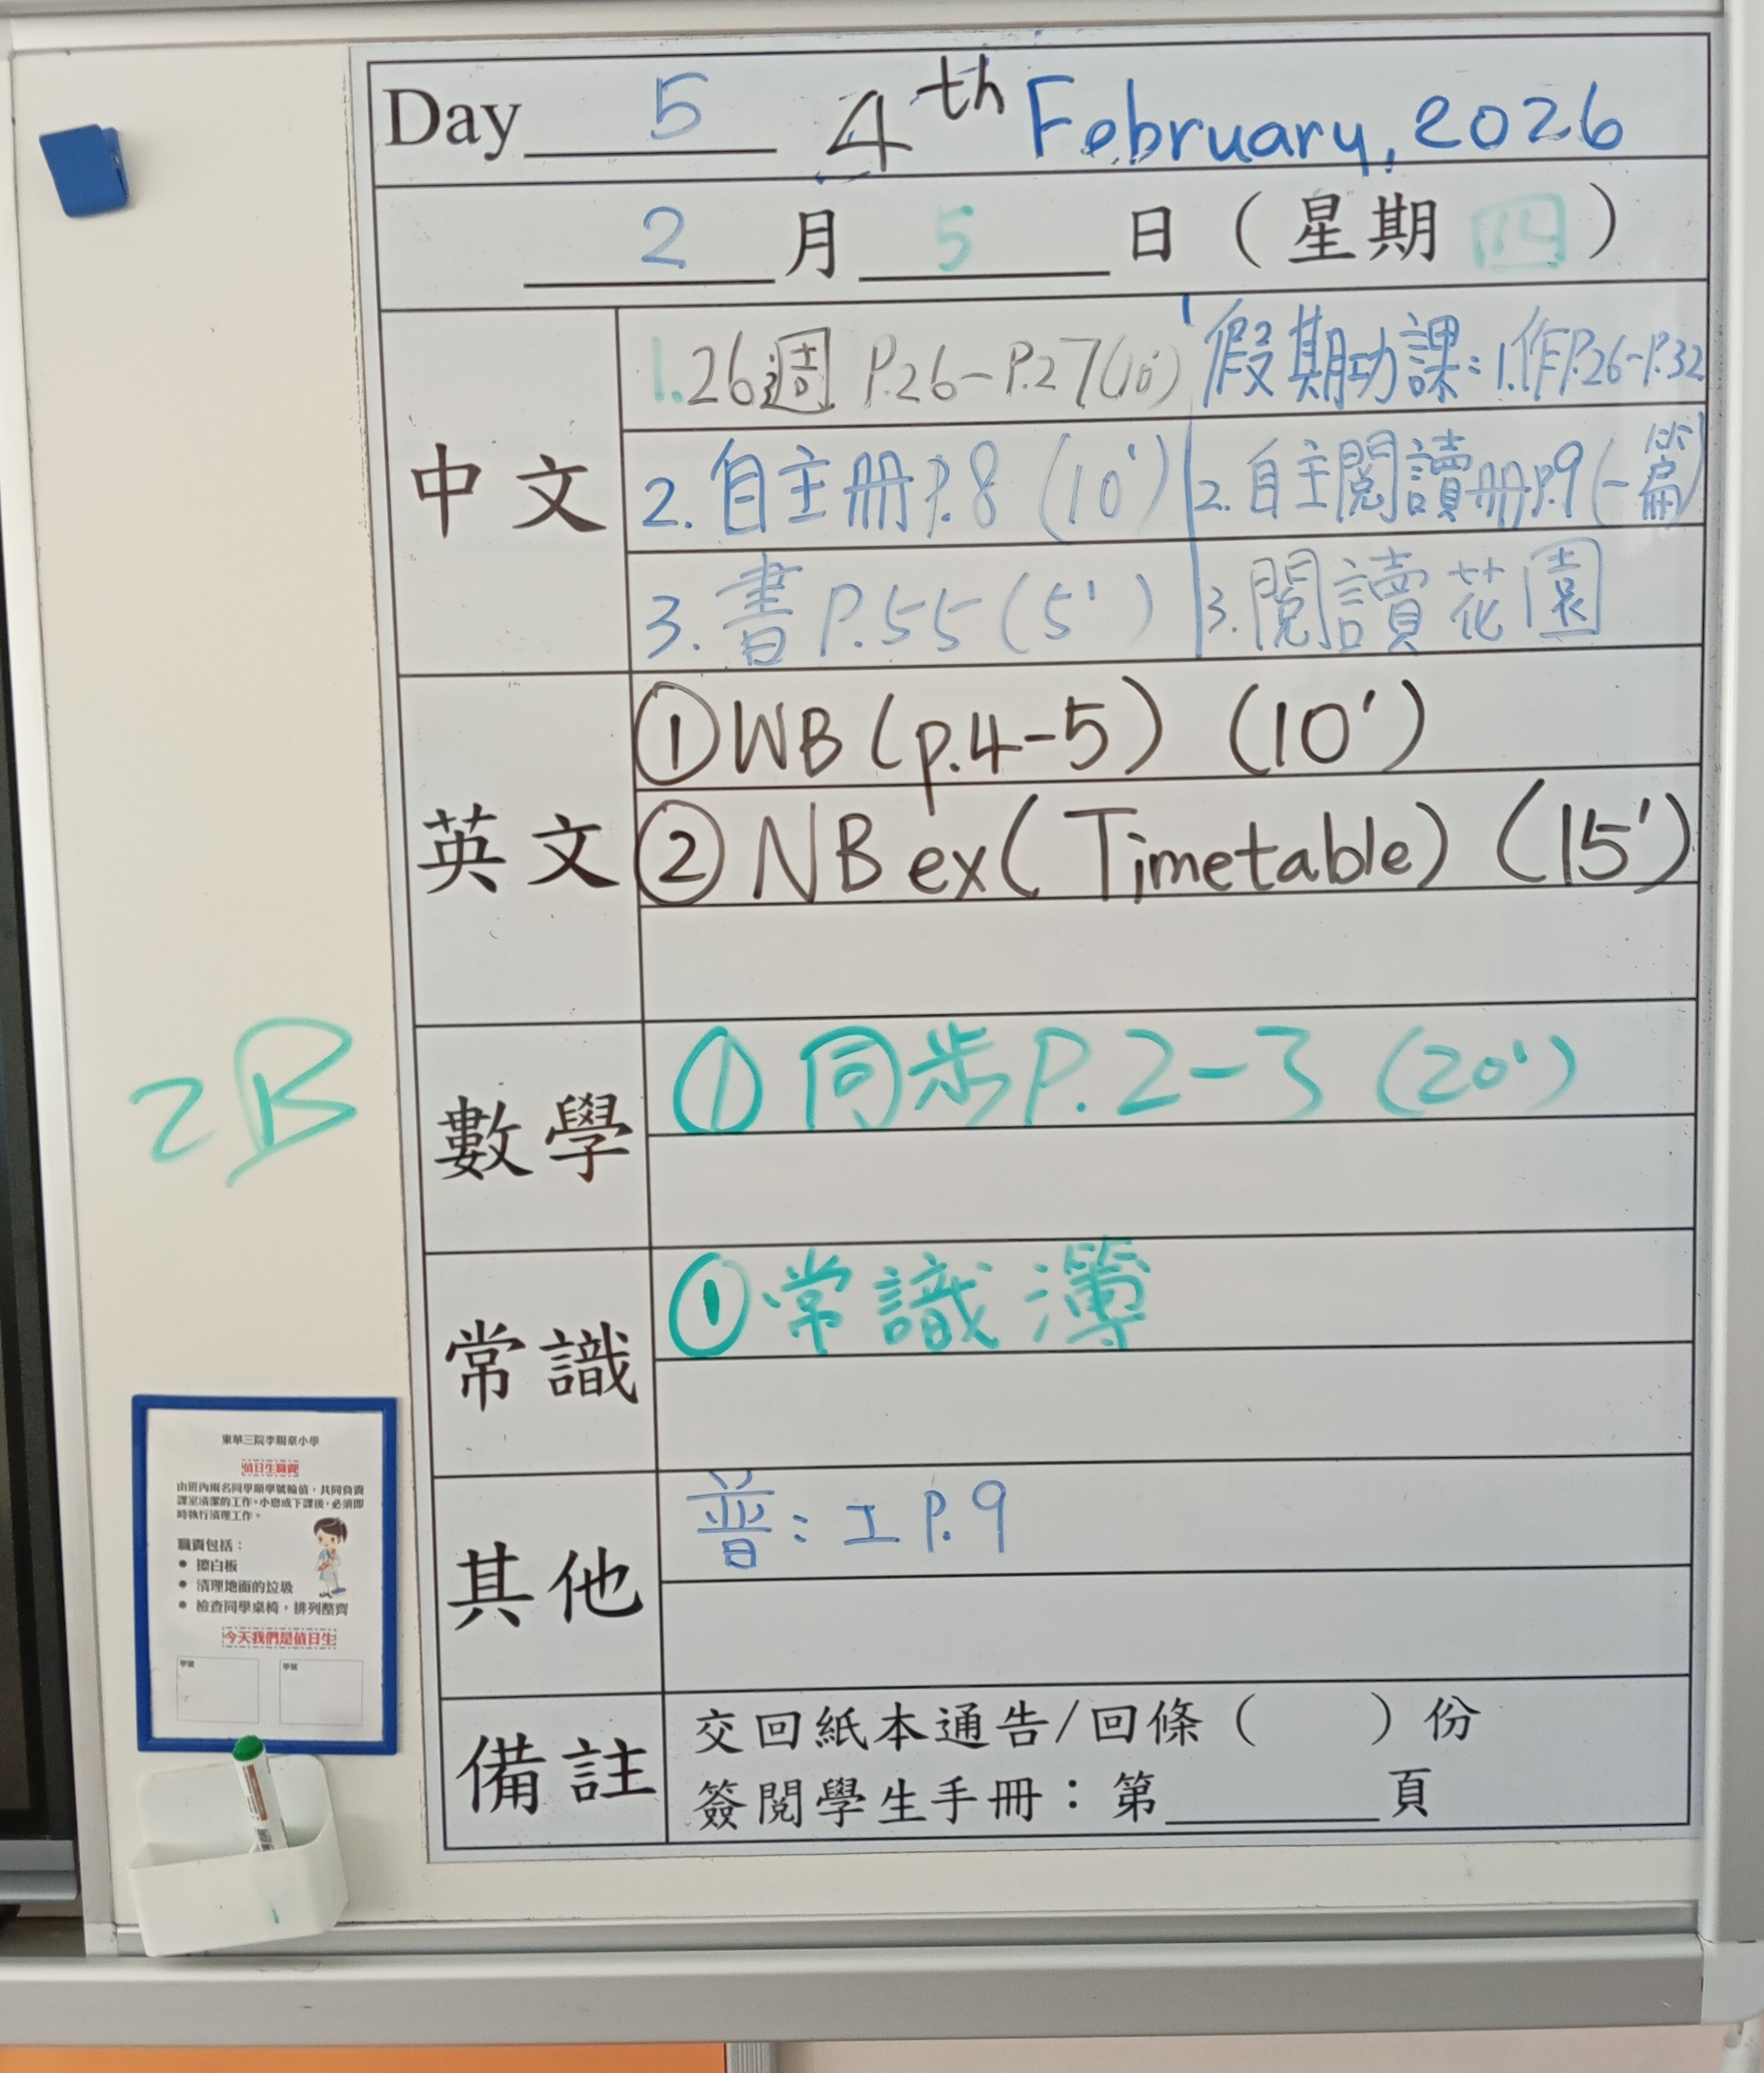 Day 5 4th February, 2026
2 月 5 日（星期四）
中文
1. 26週 P.26-P.27(10') 假期功課：1.作P.26-P.32
2. 自主册P.8 (10') 2. 自主閱讀册P.9(一篇)
3. 書 P.55 (5') 3. 閱讀花園
英文
① WB (p.4-5) (10')
② NB ex (Timetable) (15')
數學
① 同步P.2-3 (20')
常識
① 常識簿
其他
普：工 P.9
備註
交回紙本通告/回條（ ）份
簽閱學生手冊：第 頁
2B
東華三院李賜豪小學
值日生職責
由班內兩名同學順學號輪值，共同負責
課室清潔的工作。小息或下課後，必須即
時執行清理工作。
職責包括：
● 擦白板
● 清理地面的垃圾
● 檢查同學桌椅，排列整齊
今天我們是值日生
學號 學號